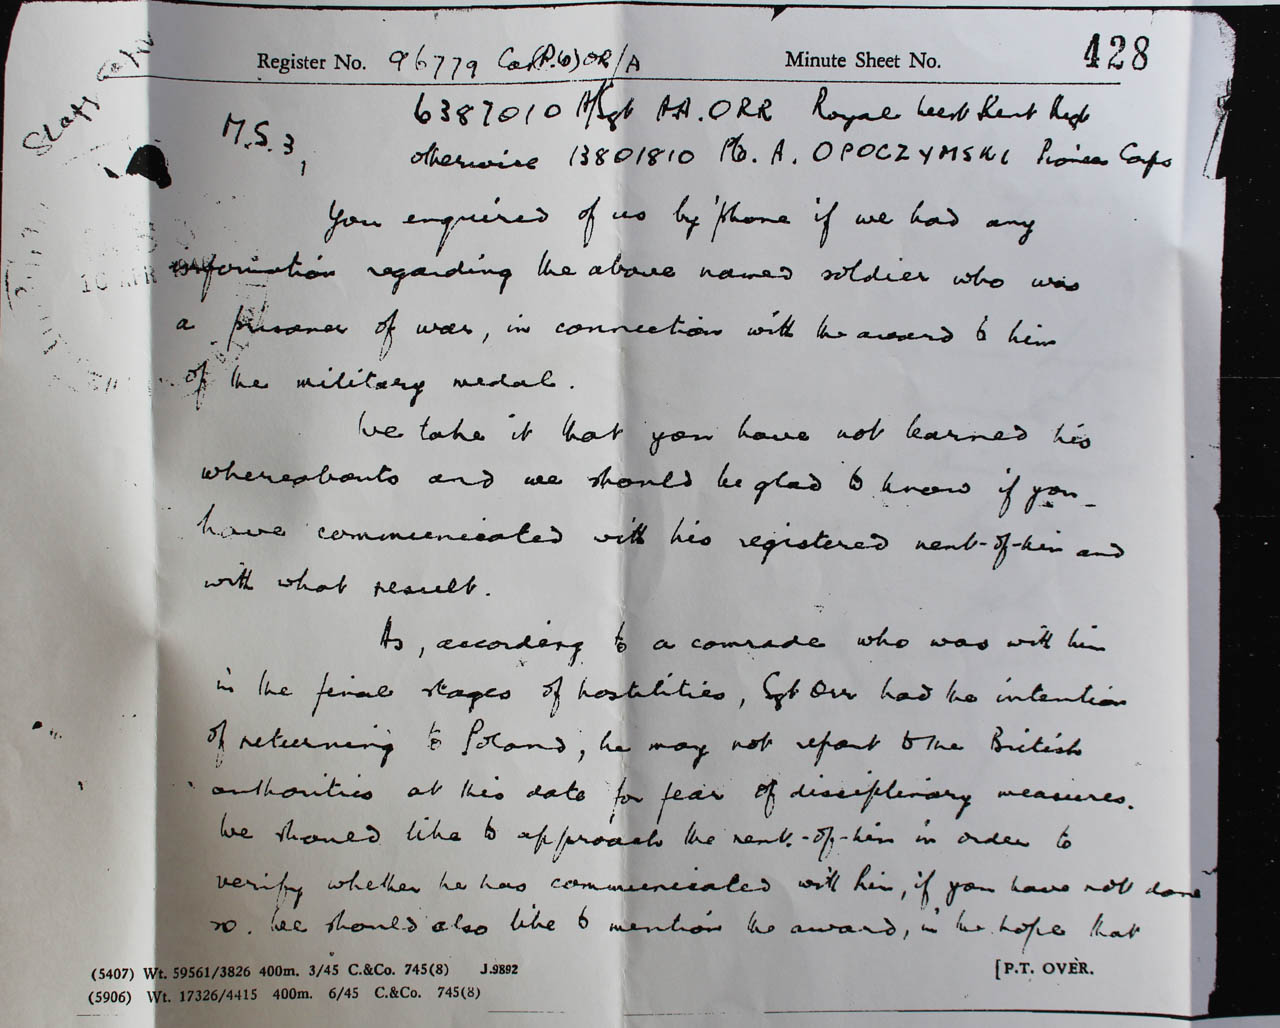 Register No. 96779 Cas(P.W)OR/A Minute Sheet No. 428
6387010 A/Sgt AA. ORR Royal West Kent Regt
M.S.3,
otherwise 13801810 Pte. A. OPOCZYNSKI Pioneer Corps
You enquired of us by 'phone if we had any
information regarding the above named soldier who was
a prisoner of war, in connection with the award to him
of the military medal.
We take it that you have not learned his
whereabouts and we should be glad to know if you
have communicated with his registered next-of-kin and
with what result.
As, according to a comrade who was with him
in the final stages of hostilities, Sgt Orr had the intention
of returning to Poland, he may not report to the British
authorities at this date for fear of disciplinary measures.
We should like to approach the next-of-kin in order to
verify whether he has communicated with him, if you have not done
so. We should also like to mention the award, in the hope that
(5407) Wt. 59561/3826 400m. 3/45 C.&Co. 745(8) J.9892
[P.T. OVER.
(5906) Wt. 17326/4415 400m. 6/45 C.&Co. 745(8)